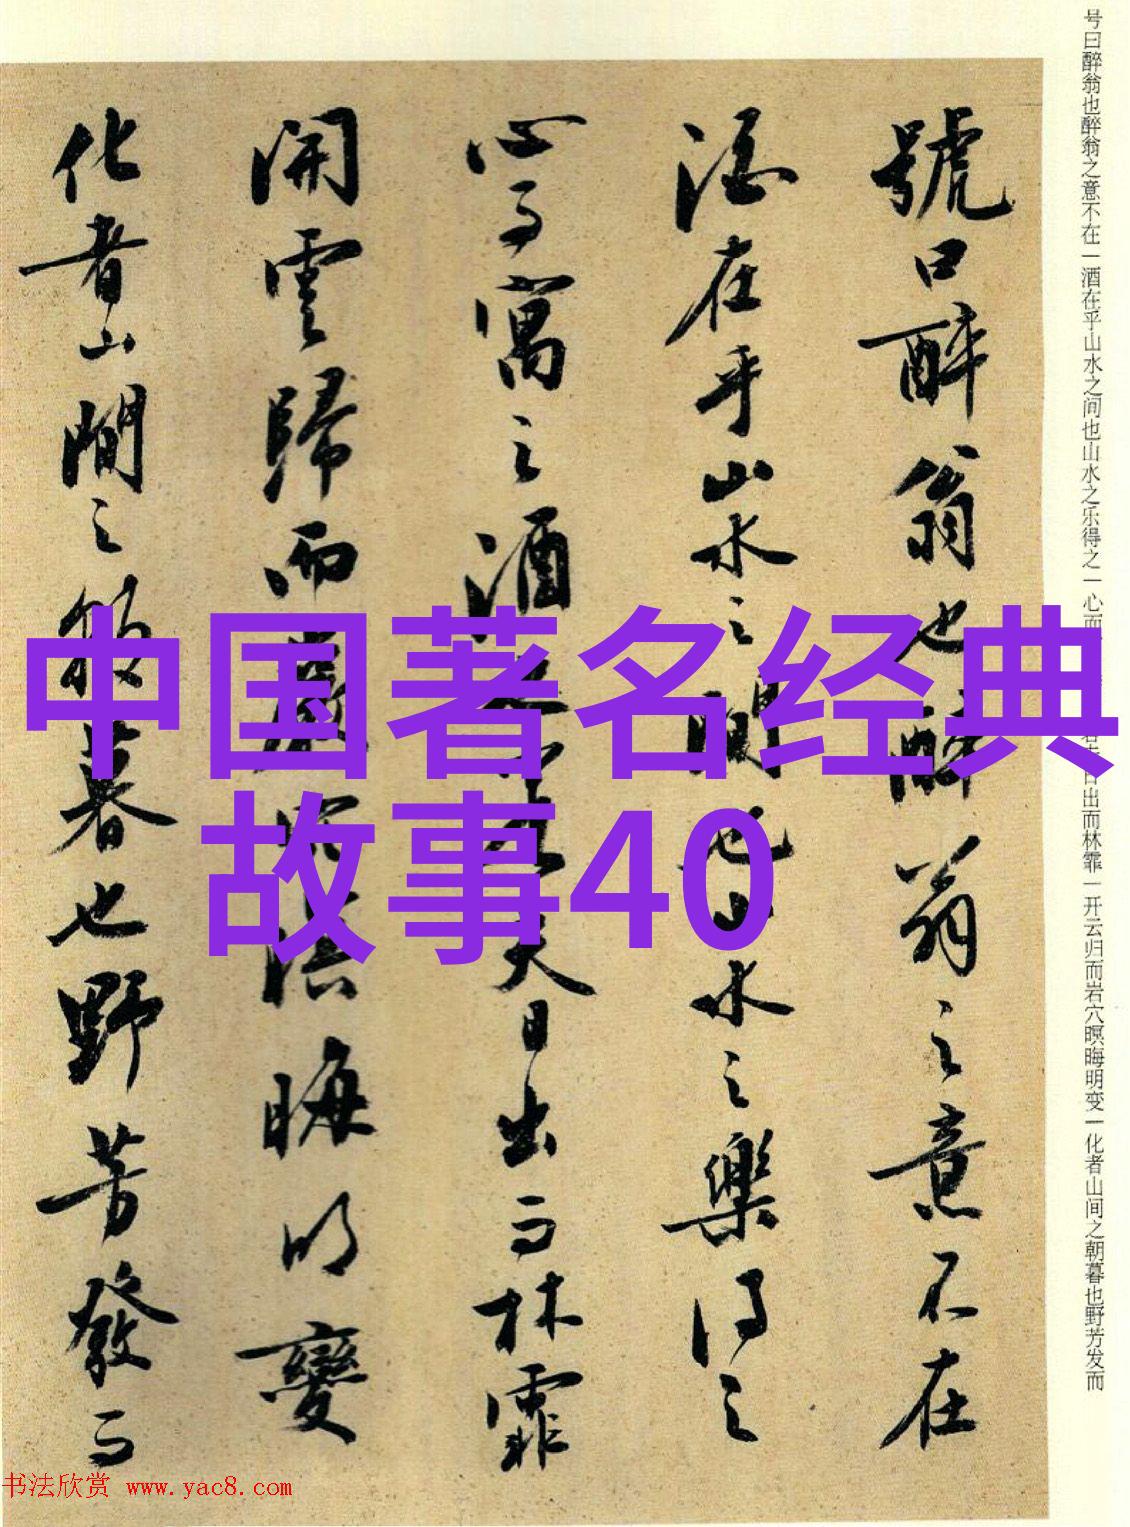 号曰醉翁也醉翁之意不在一酒在乎山水之间也山水之乐得之一心而 日出而林霏一开云归而岩穴暝晦明变一化者山间之朝暮也野芳发而
號曰醉翁也醉翁之意不在
酒在乎山水之間也山水之樂得之
心而寓之酒 夫日出而林霏
開雲歸而巖穴暝晦明變
化者山間之朝暮也野芳發而
中国著名经典
故事40
书法欣赏 www.yac8.com